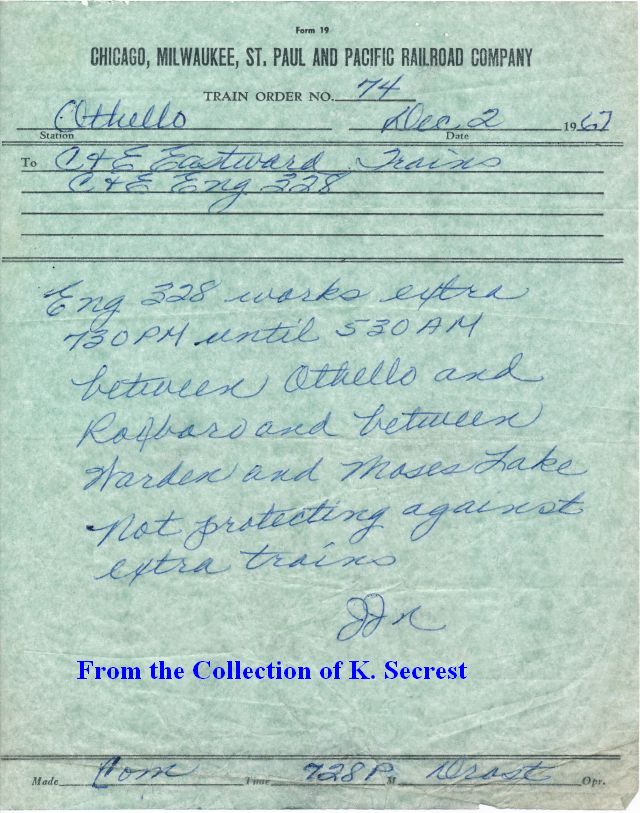 Form 19
CHICAGO, MILWAUKEE, ST. PAUL AND PACIFIC RAILROAD COMPANY
TRAIN ORDER NO. 74
Othello Dec 2 1967
Station Date
To C & E Eastward Trains
C & E Eng 328
Eng 328 works extra
730 PM until 530 AM
between Othello and
Roxboro and between
Warden and Moses Lake
not protecting against
extra trains
JJN
From the Collection of K. Secrest
Made Com Time 728 P M Drost Opr.